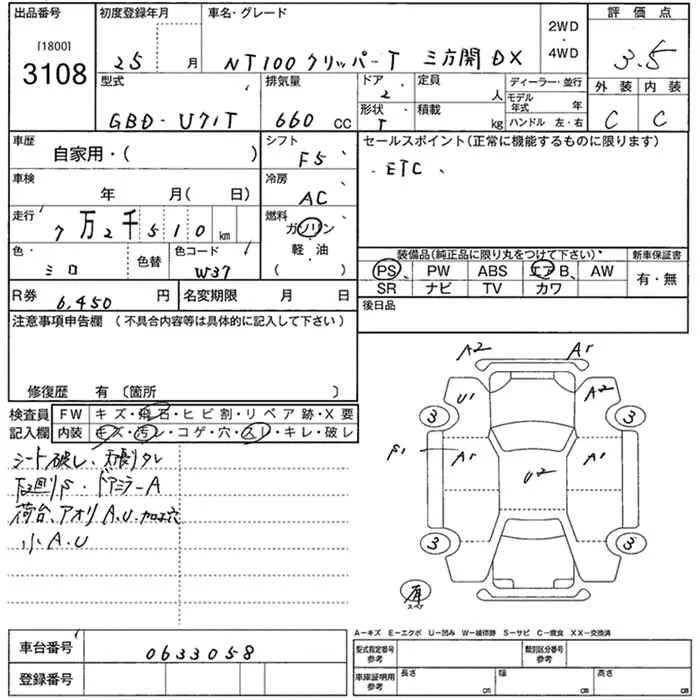 出品番号 初度登録年月 車名・グレード 評価点
[1800]
3108
25 月 NT100 クリッパーT 三方開 DX 2WD・4WD 3.5
型式 排気量 ドア 定員 ディーラー・並行 外装 内装
GBD-U71T 660 CC 2 人 モデル年式 年 C C
形状 T 積載 kg ハンドル 左・右
車歴 シフト セールスポイント(正常に機能するものに限ります)
自家用・( ) F5
ETC
車検 冷房
年 月( 日) AC
走行 燃料
7万2千510km ガソリン
軽・油
( )
色 色替 色コード
シロ W37
装備品(純正品に限り丸をつけて下さい) 新車保証書
PS PW ABS エアB AW 有・無
SR ナビ TV カワ
R券 6,450 円 名変期限 月 日 後日品
注意事項申告欄 (不具合内容等は具体的に記入して下さい)
修復歴 有 〔箇所 〕
検査員記入欄
FW キズ・飛石・ヒビ割・リペア跡・X要
内装 キズ・汚レ・コゲ・穴・スレ・キレ・破レ
シート破レ、天張タレ
下廻りS・ドアミラーA
荷台、アオリA.U.加工穴
小A.U
A2 A1
U1 A2
3 3
S1 A1 U2 A1
3 3
有
スペア
A-キズ E-エクボ U-凹み W-補修跡 S-サビ C-腐食 XX-交換済
車台番号 0633058
登録番号
型式指定番号 参考 類別区分番号 参考
車庫証明用 参考 長さ cm 幅 cm 高さ cm